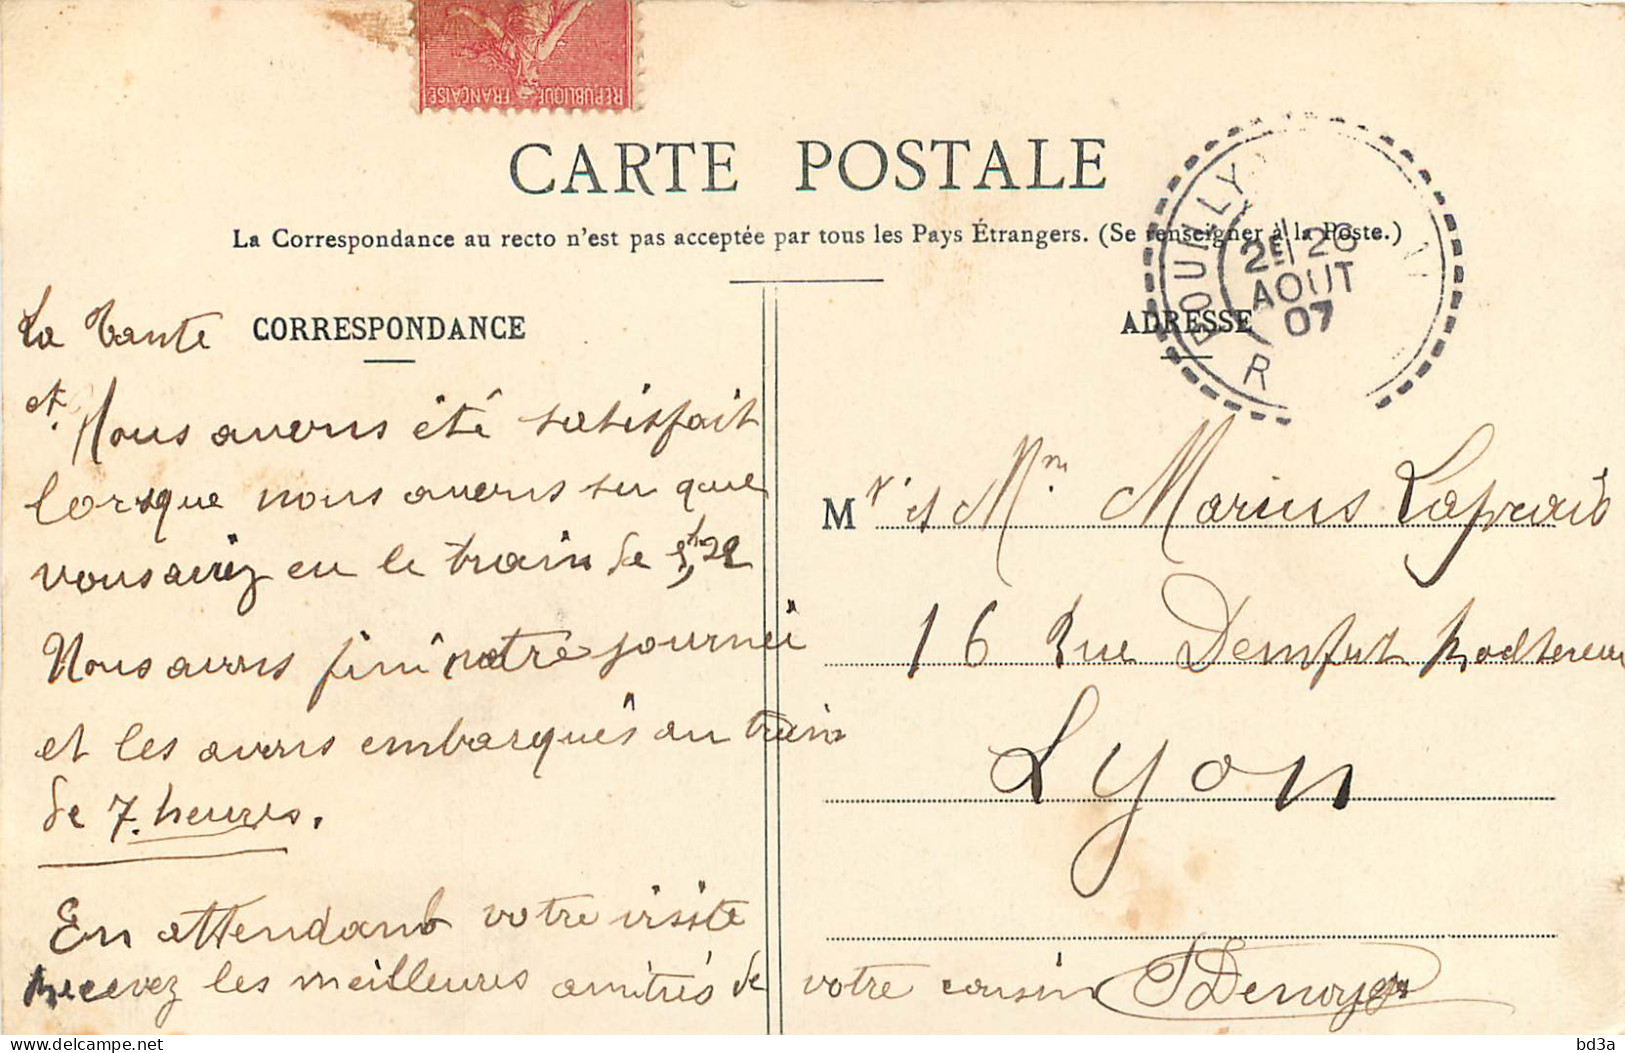 RÉPUBLIQUE FRANÇAISE
CARTE POSTALE
La Correspondance au recto n'est pas acceptée par tous les Pays Étrangers. (Se renseigner à la Poste.)
BOUILLY
2E 26
AOUT
07
R
CORRESPONDANCE
ADRESSE
La tante
et Nous avons été satisfait
lorsque nous avons su que
vous aviez eu le train de 5h,22
Nous avons fini notre journéé
et les avons embarqués au train
de 7 heures.
En attendant votre visite
Recevez les meilleures amitiés de
votre cousin JDenoyer
Mr et Mme Marius Laprais
16 Rue Demfert Rochereau
Lyon
bd3a